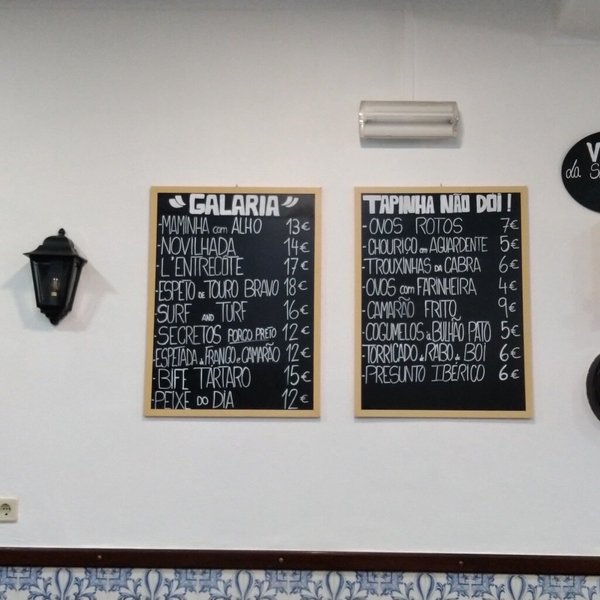 "GALARIA"
-MAMINHA com ALHO 13€
-NOVILHADA 14€
-L'ENTRECÔTE 17€
-ESPETO DE TOURO BRAVO 18€
-SURF AND TURF 16€
-SECRETOS PORCO PRETO 12€
-ESPETADA de FRANGO e CAMARÃO 12€
-BIFE TÁRTARO 15€
-PEIXE DO DIA 12€
TAPINHA NÃO DÓI!
-OVOS ROTOS 7€
-CHOURIÇO em AGUARDENTE 5€
-TROUXINHAS DA CABRA 6€
-OVOS com FARINHEIRA 4€
-CAMARÃO FRITO 9€
-COGUMELOS à BULHÃO PATO 5€
-TORRICADO de RABO de BOI 6€
-PRESUNTO IBÉRICO 6€
V
da S